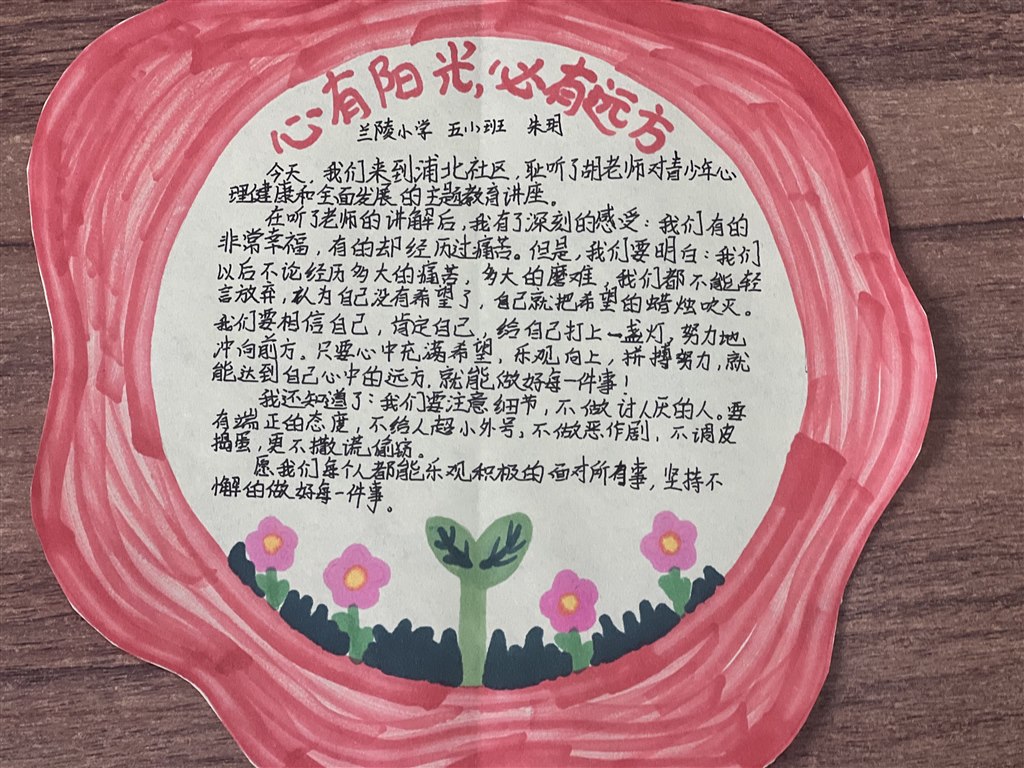 心有阳光,必有远方
兰陵小学 五小班 朱玥
今天，我们来到浦北社区，耻听了胡老师对青少年心
理健康和全面发展的主题教育讲座。
在听了老师的讲解后，我有了深刻的感受：我们有的
非常幸福，有的却经历过痛苦。但是，我们要明白：我们
以后不论经历多大的痛苦，多大的磨难，我们都不能轻
言放弃，认为自己没有希望了，自己就把希望的蜡烛吹灭。
我们要相信自己，肯定自己，给自己打上一盏灯，努力地
冲向前方。只要心中充满希望，乐观向上，拼搏努力，就
能达到自己心中的远方，就能做好每一件事！
我还知道了：我们要注意细节，不做讨人厌的人。要
有端正的态度，不给人起小外号，不做恶作剧，不调皮
捣蛋，更不撒谎偷窃。
愿我们每个人都能乐观积极的面对所有事，坚持不
懈的做好每一件事。